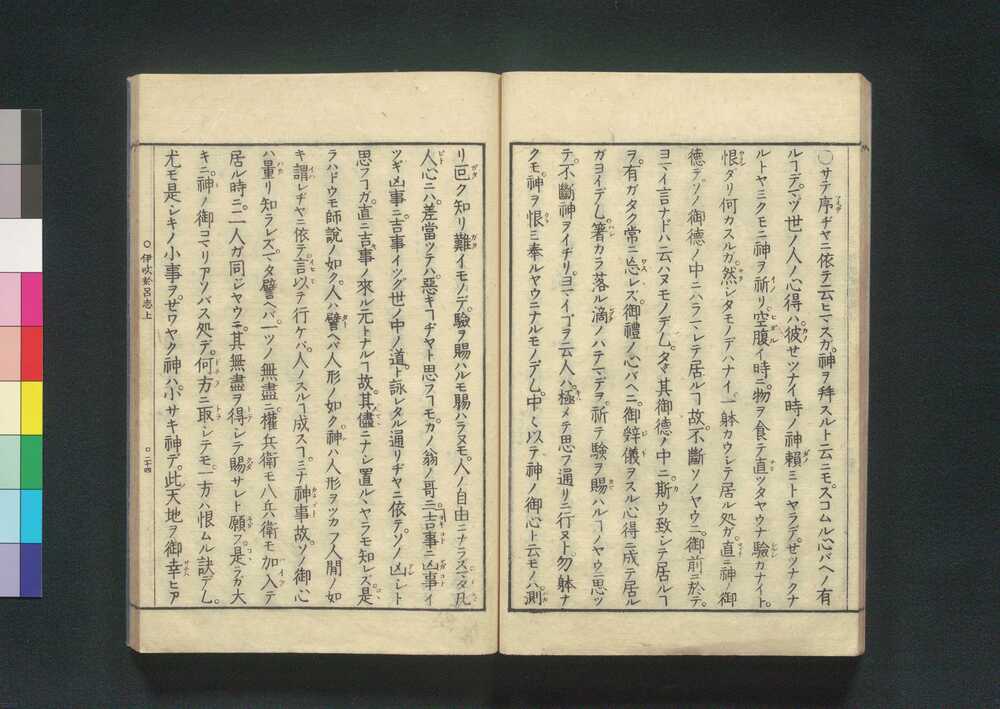 〇サテ序ヂヤニ依テ云ヒマスガ。神ヲ拜スルト云ニモ。スコムル心バヘノ有
ルヿデ。マヅ世ノ人ノ心得ハ。彼セツナイ時ノ神賴ミトヤラデ。セツナクナ
ルトヤミクモニ神ヲ祈リ。空腹イ時ニ。物ヲ食テ直ツタヤウナ驗カナイト。
恨ダリ何カスルガ。然シタモノデハナイ。一躰カウシテ居ル処ガ。直ニ神ノ御
德デ。ソノ御德ノ中ニハラマレテ居ルヿ故。不斷ソノヤウニ。御前ニ於テ。
ヨマイ言ナドハ云ハヌモノデム。タヾ其御德ノ中ニ。斯ウ致シテ居ルヿ
ヲ。有ガタク常ニ忘レズ。御禮ノ心バヘニ。御辤儀ヲスル心得ニ成テ居ル
ガヨイデム。箸カラ落ル滴ノハテマデヲ。祈テ驗ヲ賜ハルヿノヤウニ思ツ
テ。不斷神ヲイヂリ。ヨマイゴヲ云人ハ。極メテ思フ通リニ行ヌト。勿躰ナ
クモ。神ヲ恨ミ奉ルヤウニナルモノデム。中〻以テ神ノ御心ト云モノハ。測
リ叵ク知リ難イモノデ。驗ヲ賜ハルモ賜ハラヌモ。人ノ自由ニナラズ。マタ凡
人心ニハ。差當ツテハ。惡キヿヂヤト思フヿモ。カノ翁ノ哥ニ。吉事ニ凶事イ
ツギ凶事ニ吉事イツグ世ノ中ノ道。ト詠レタル通リヂヤニ依テ。ソノ凶シト
思フヿガ。直ニ吉事ノ來ル元トナルヿ故。其儘ニナシ置ルヽヤラモ知レズ。是
ラハドウモ師說ノ如ク。人ハ譬ヘバ人形ノ如ク。神ハ人形ヲツカフ人間ノ如
キ謂レヂヤニ依テ。言以テ行ケバ。人ノスルヿ成スヿ。ミナ神事故。ソノ御心
ハ量リ知ラレズ。マタ譬ヘバ。一ツノ無盡ニ。權兵衛モ八兵衛モ加入テ
居ル時ニ。二人ガ同ジヤウニ。其無盡ヲ得シテ賜サレト願フ。是ラガ大
キニ。神ノ御コマリアソバス処デ。何方ニ取レテモ。一方ハ恨ムル訣デム。
尤モ是シキノ小事ヲ。セワヤク神ハ。小サキ神デ。此天地ヲ御幸ヒア
〇伊吹於呂志上
〇二十四